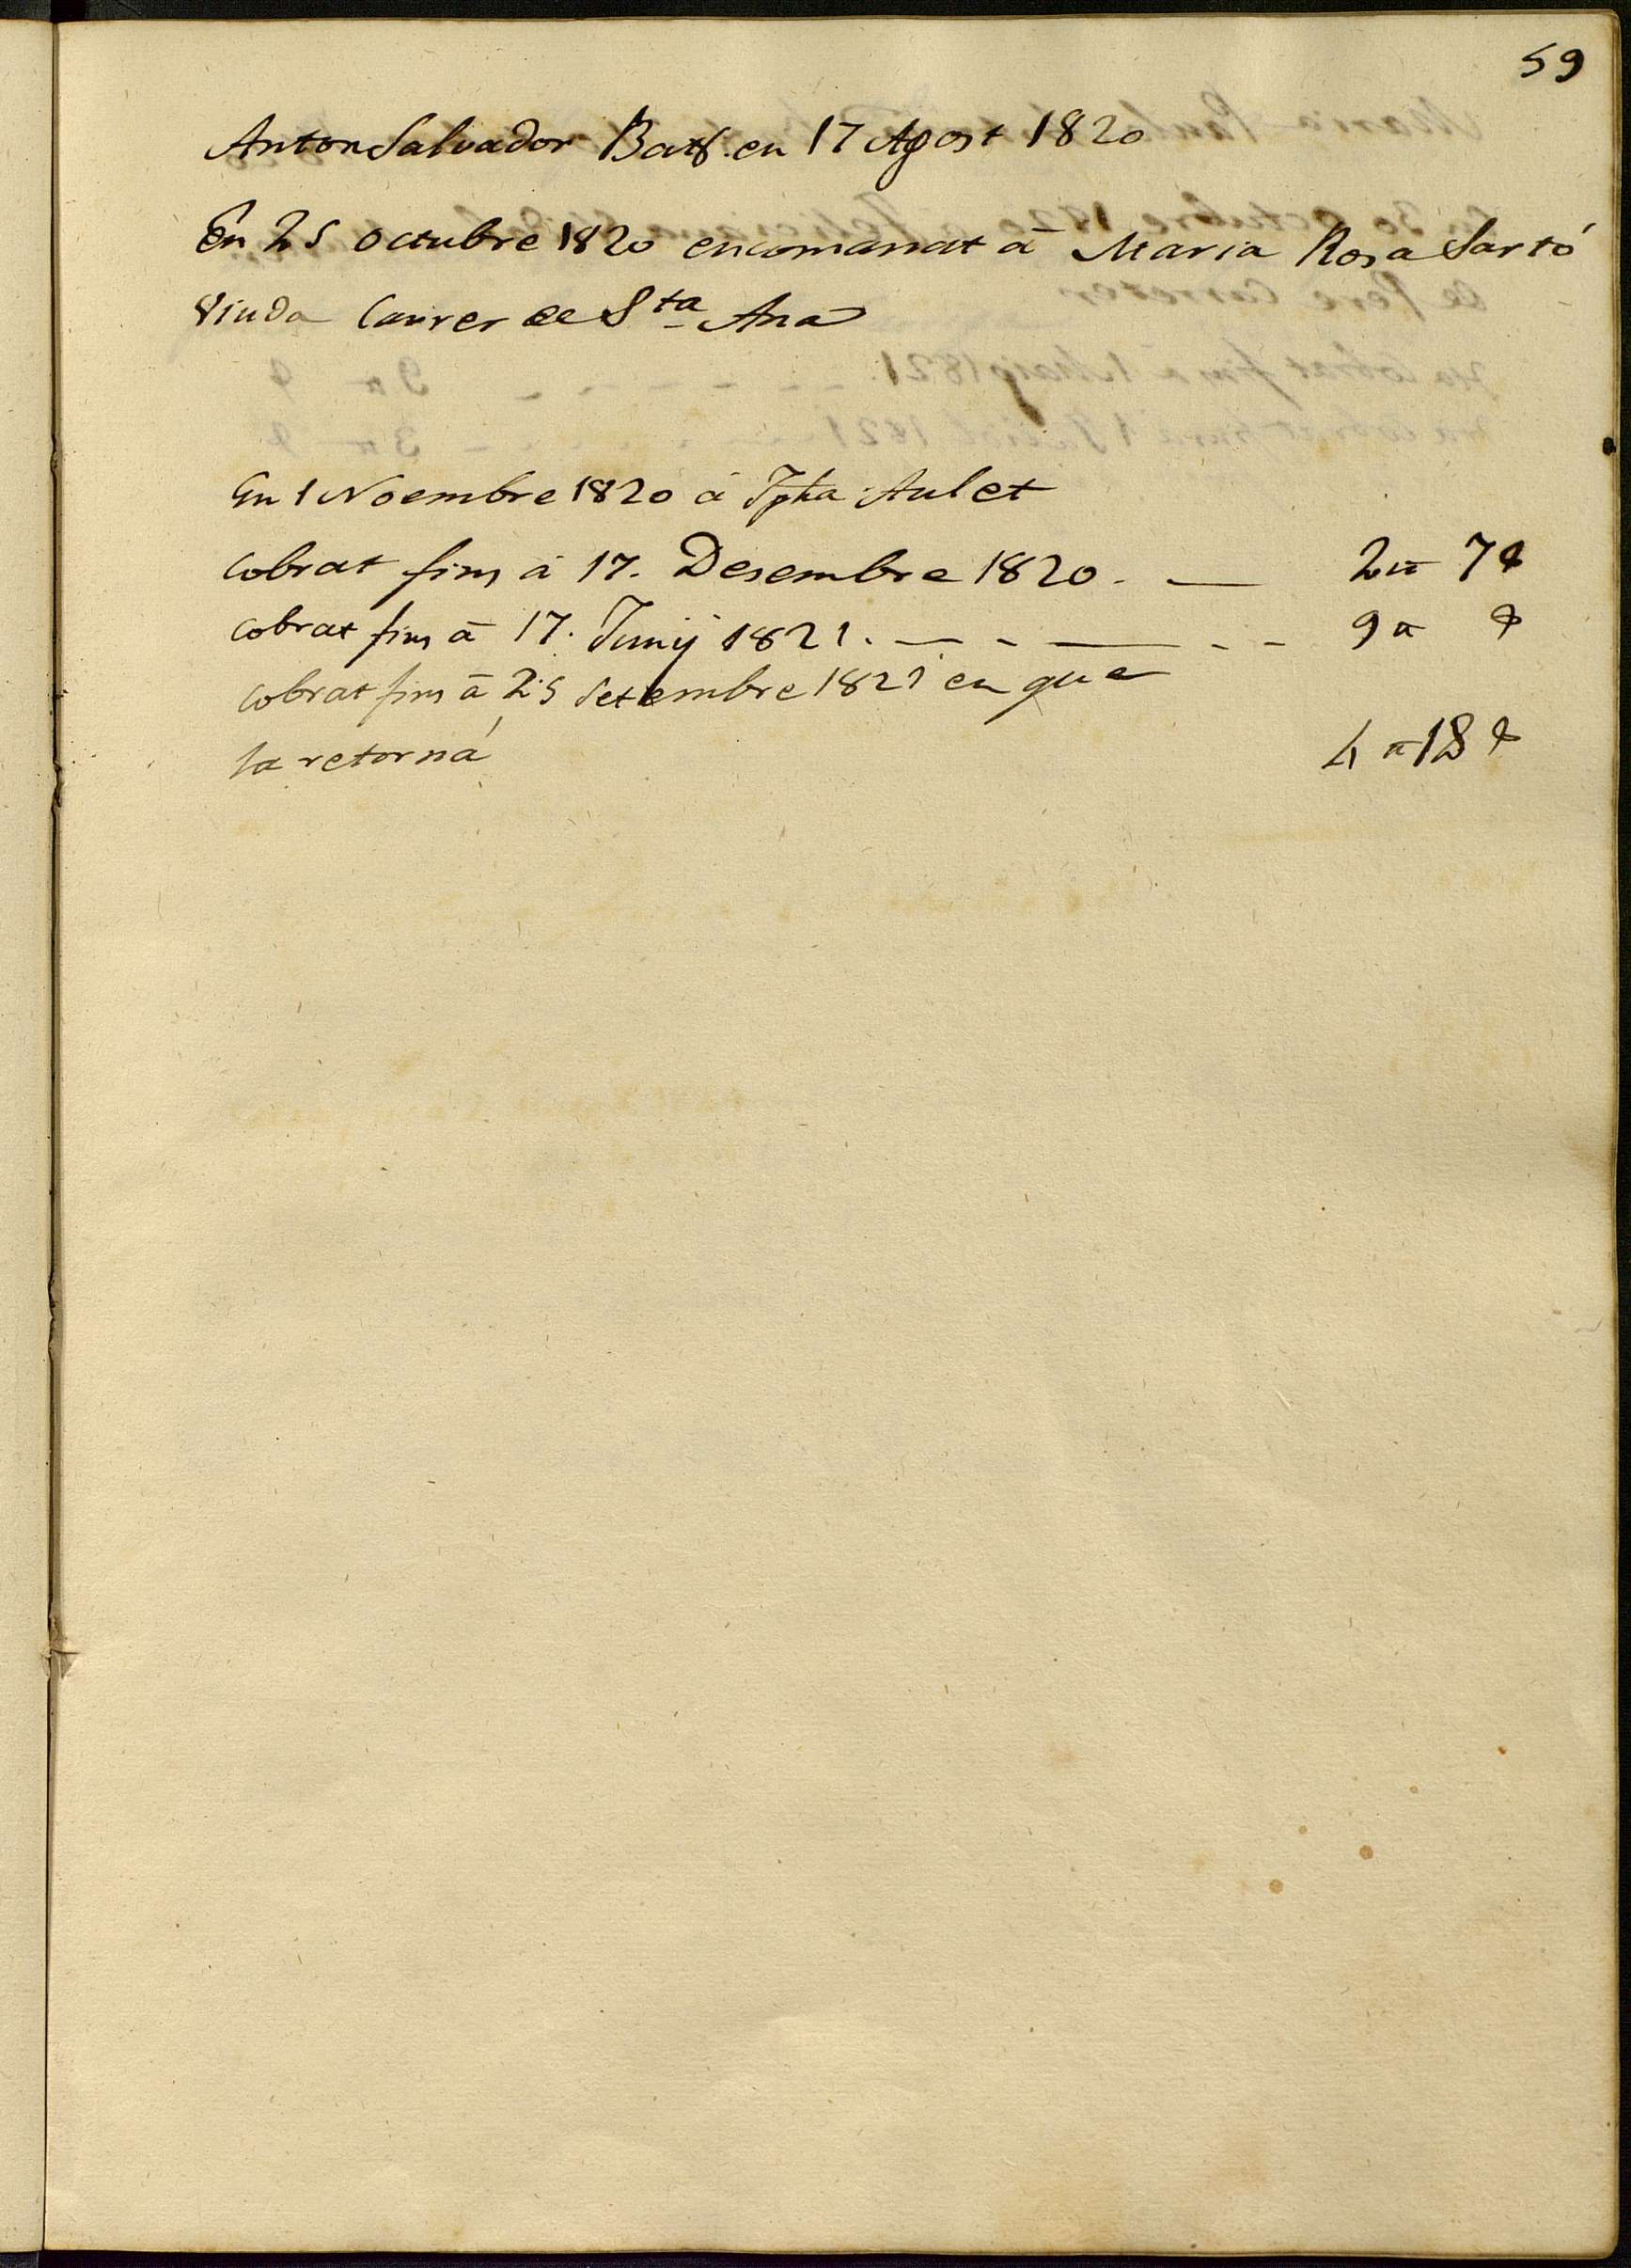 59
Anton Salvador Bat. en 17 Agost 1820
En 25 Octubre 1820 encomanat á Maria Rosa Sartó
Viuda Carrer de Sta Ana
En 1 Noembre 1820 á Jpha Aulet
Cobrat fins á 17. Desembre 1820. — 2 ₶ 7 ß
Cobrat fins á 17. Junij 1821. — - — - - 9 ₶ ß
Cobrat fins á 25 Setembre 1821 en que
la retorná 4 ₶ 18 ß